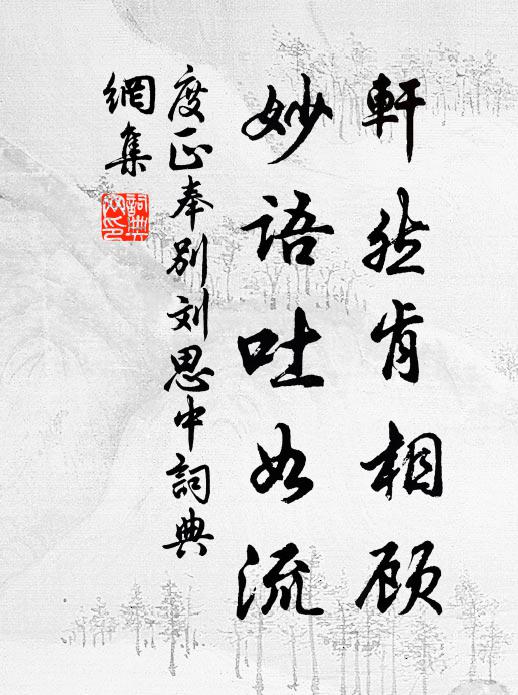 軒然肯相顾
妙语吐如流
度正奉别刘思中詞典
網集
詞典網印